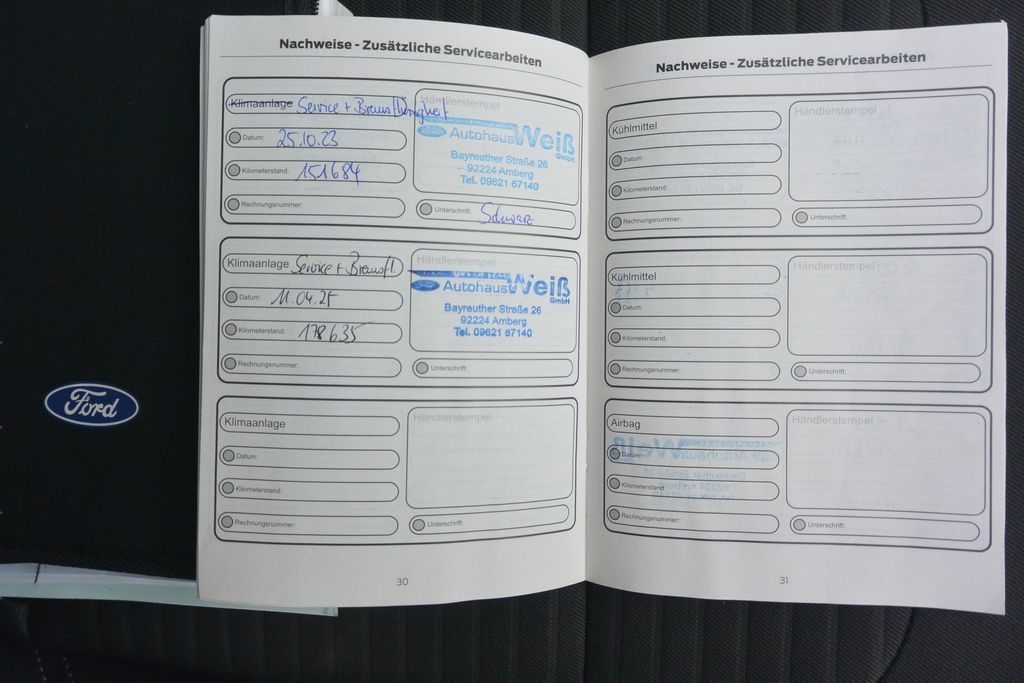 Nachweise - Zusätzliche Servicearbeiten
Klimaanlage Service + Bremsflüssigkeit
Händlerstempel
Datum: 25.10.23
Kilometerstand: 151684
Rechnungsnummer:
Autohaus Weiß GmbH
Bayreuther Straße 26
92224 Amberg
Tel. 09621 67140
Unterschrift: Schwarz
Klimaanlage Service + Bremsfl.
Händlerstempel
Datum: 11.04.25
Kilometerstand: 178635
Rechnungsnummer:
Ford Autohaus Weiß GmbH
Bayreuther Straße 26
92224 Amberg
Tel. 09621 67140
Unterschrift:
Klimaanlage
Händlerstempel
Datum:
Kilometerstand:
Rechnungsnummer:
Unterschrift:
30
Nachweise - Zusätzliche Servicearbeiten
Kühlmittel
Händlerstempel
Datum:
Kilometerstand:
Rechnungsnummer:
Unterschrift:
Kühlmittel
Händlerstempel
Datum:
Kilometerstand:
Rechnungsnummer:
Unterschrift:
Airbag
Händlerstempel
Datum:
Kilometerstand:
Rechnungsnummer:
Unterschrift:
31
Ford